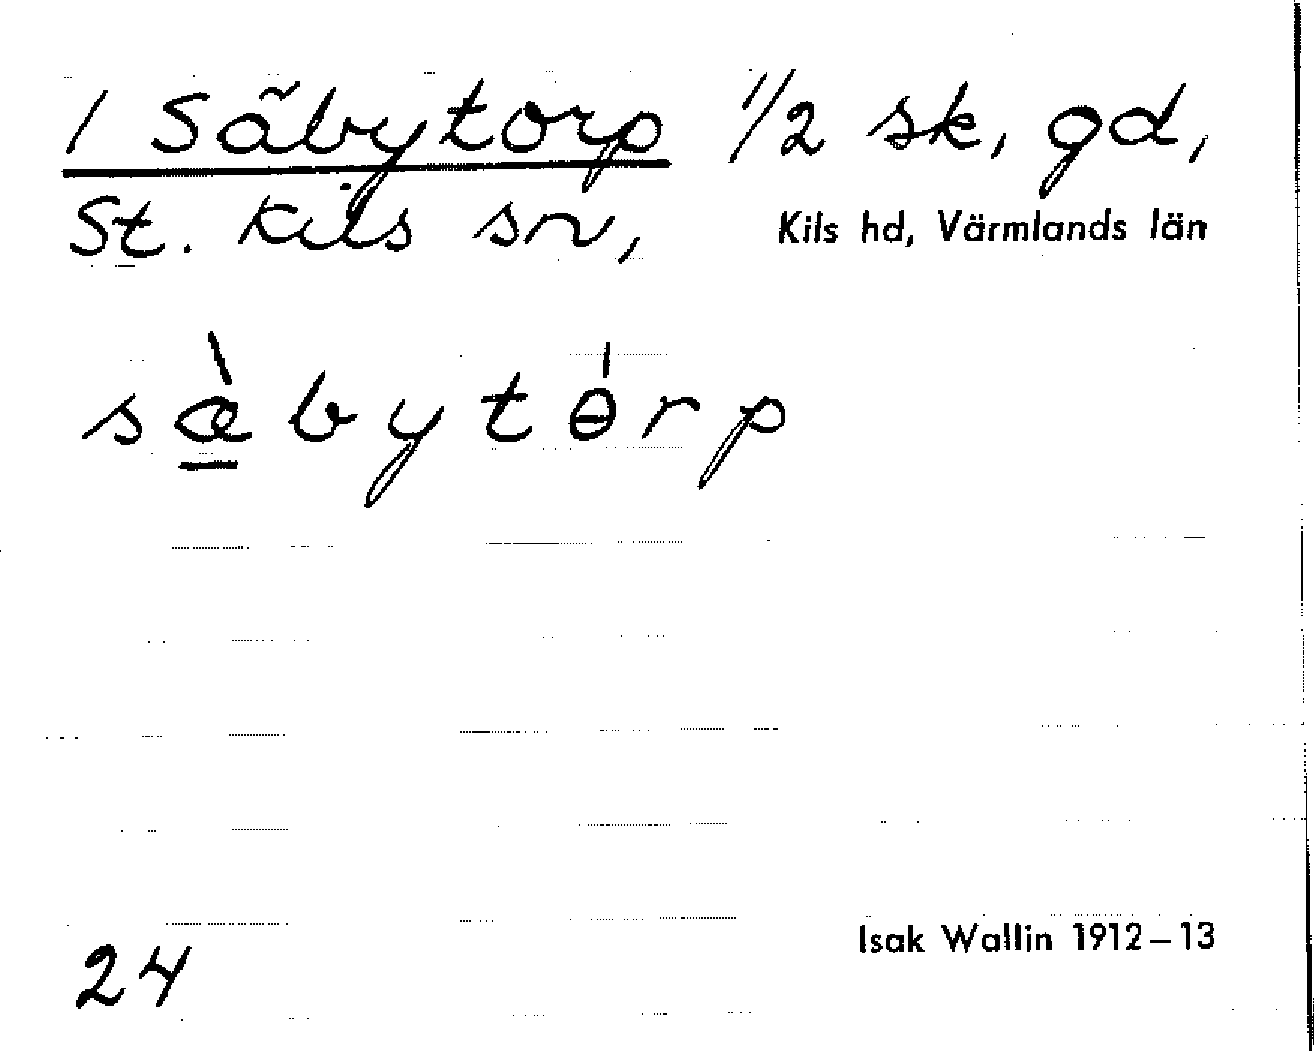 1 Säbytorp 1/2 sk, gd,
St. Kils sn, Kils hd, Värmlands län
sæ̠̀bytɵ́rp
24
Isak Wallin 1912–13